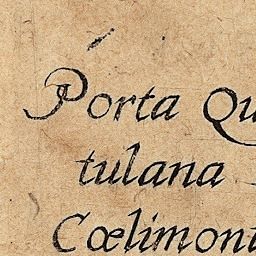 Porta Qu
tulana
Cœlimont